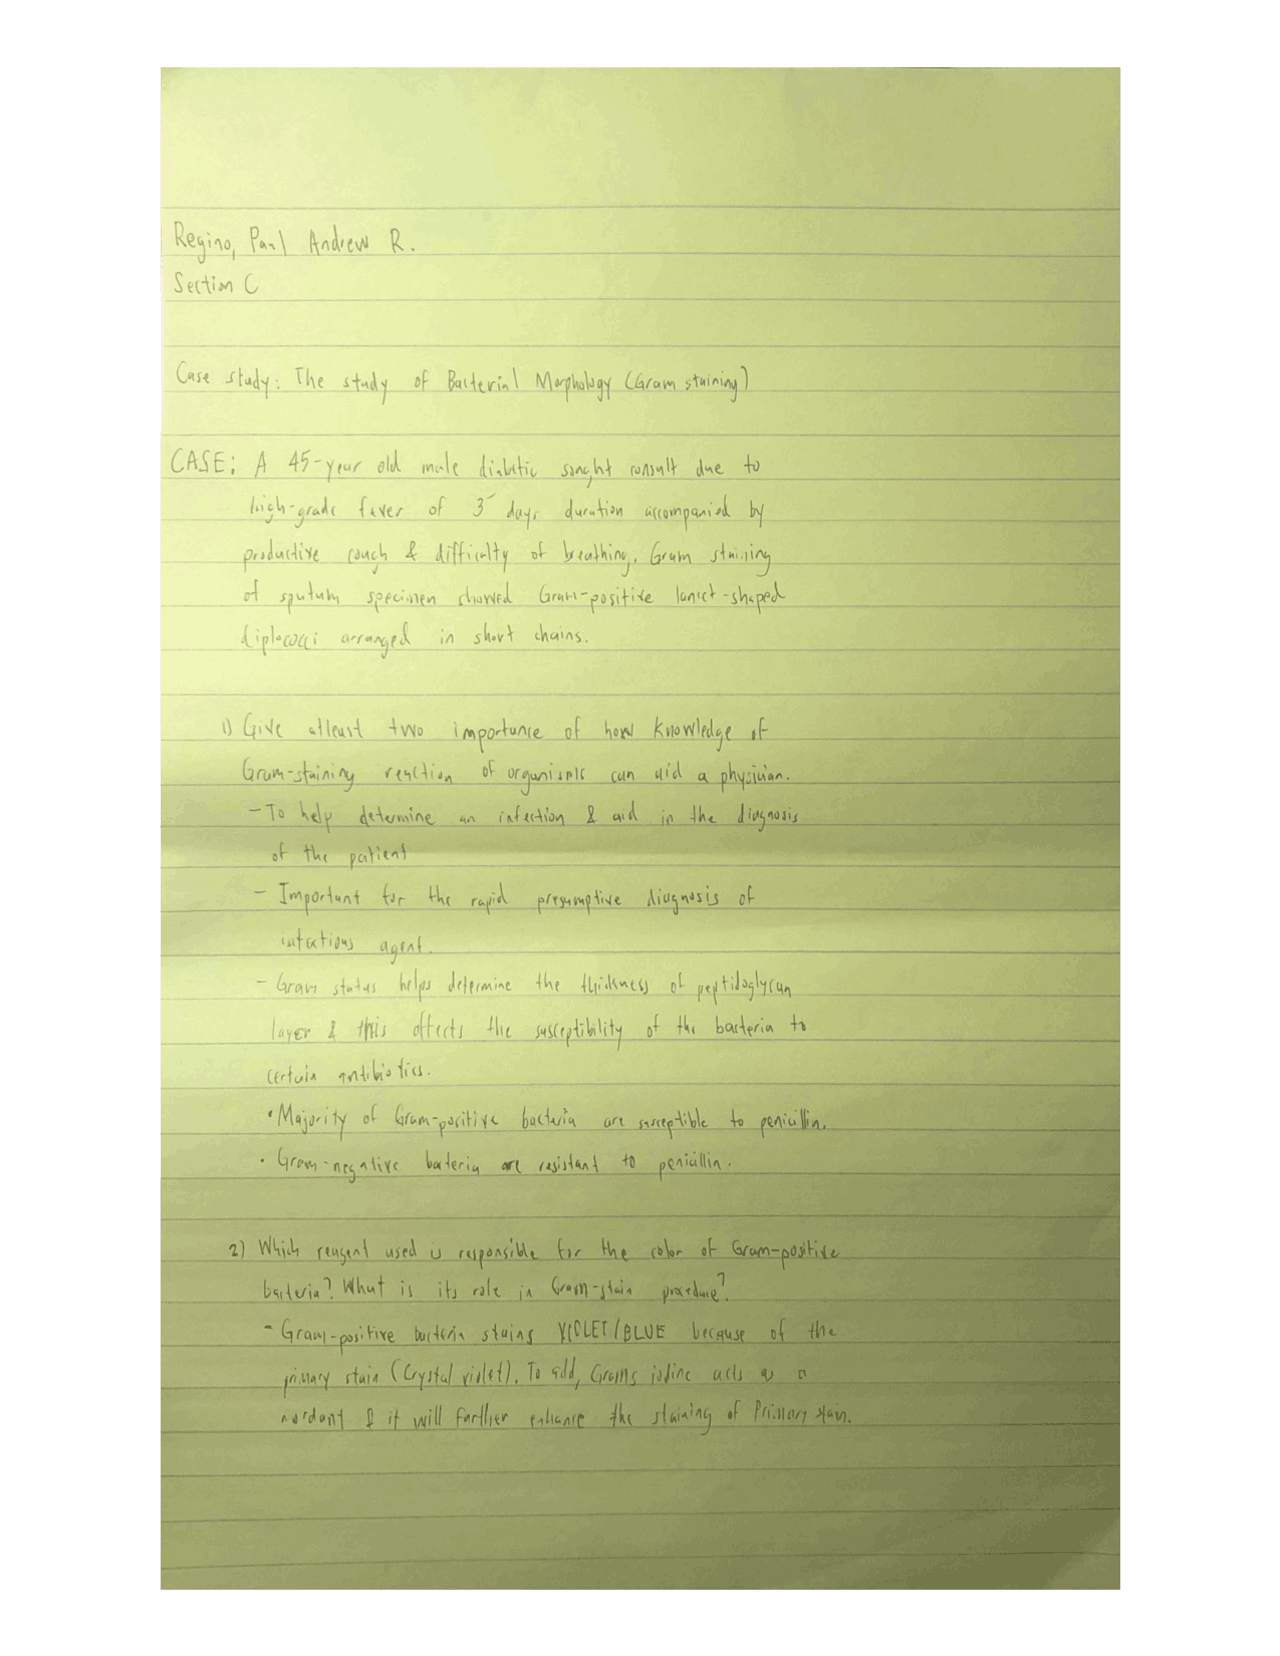 Regino, Paul Andrew R.
Section C
Case study: The study of Bacterial Morphology (Gram staining)
CASE: A 45-year old male diabetic sought consult due to
high-grade fever of 3 days duration accompanied by
productive cough & difficulty of breathing. Gram staining
of sputum specimen showed Gram-positive lancet-shaped
diplococci arranged in short chains.
1) Give atleast two importance of how knowledge of
Gram-staining reaction of organisms can aid a physician.
- To help determine an infection & aid in the diagnosis
of the patient
- Important for the rapid presumptive diagnosis of
infectious agent.
- Gram status helps determine the thickness of peptidoglycan
layer & this affects the susceptibility of the bacteria to
certain antibiotics.
• Majority of Gram-positive bacteria are susceptible to penicillin.
• Gram-negative bacteria are resistant to penicillin.
2) Which reagent used is responsible for the color of Gram-positive
bacteria? What is its role in Gram-stain procedure?
- Gram-positive bacteria stains VIOLET/BLUE because of the
primary stain (Crystal violet). To add, Grams iodine acts as a
mordant & it will further enhance the staining of Primary stain.